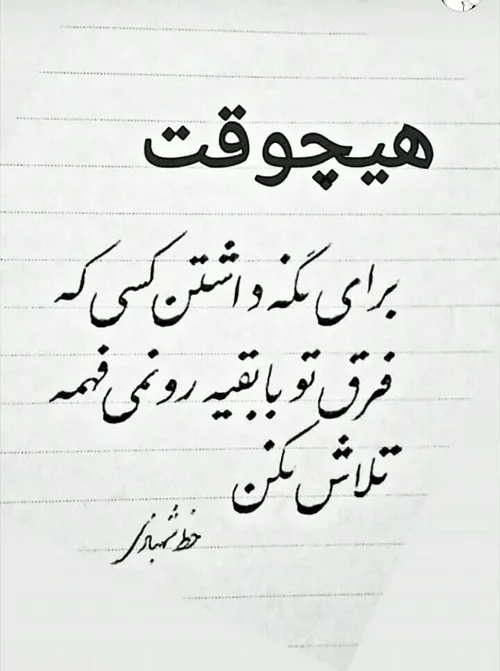 هیچوقت
برای نگه داشتن کسی که
فرق تو با بقیه رو نمی فهمه
تلاش نکن
خط شهبازی